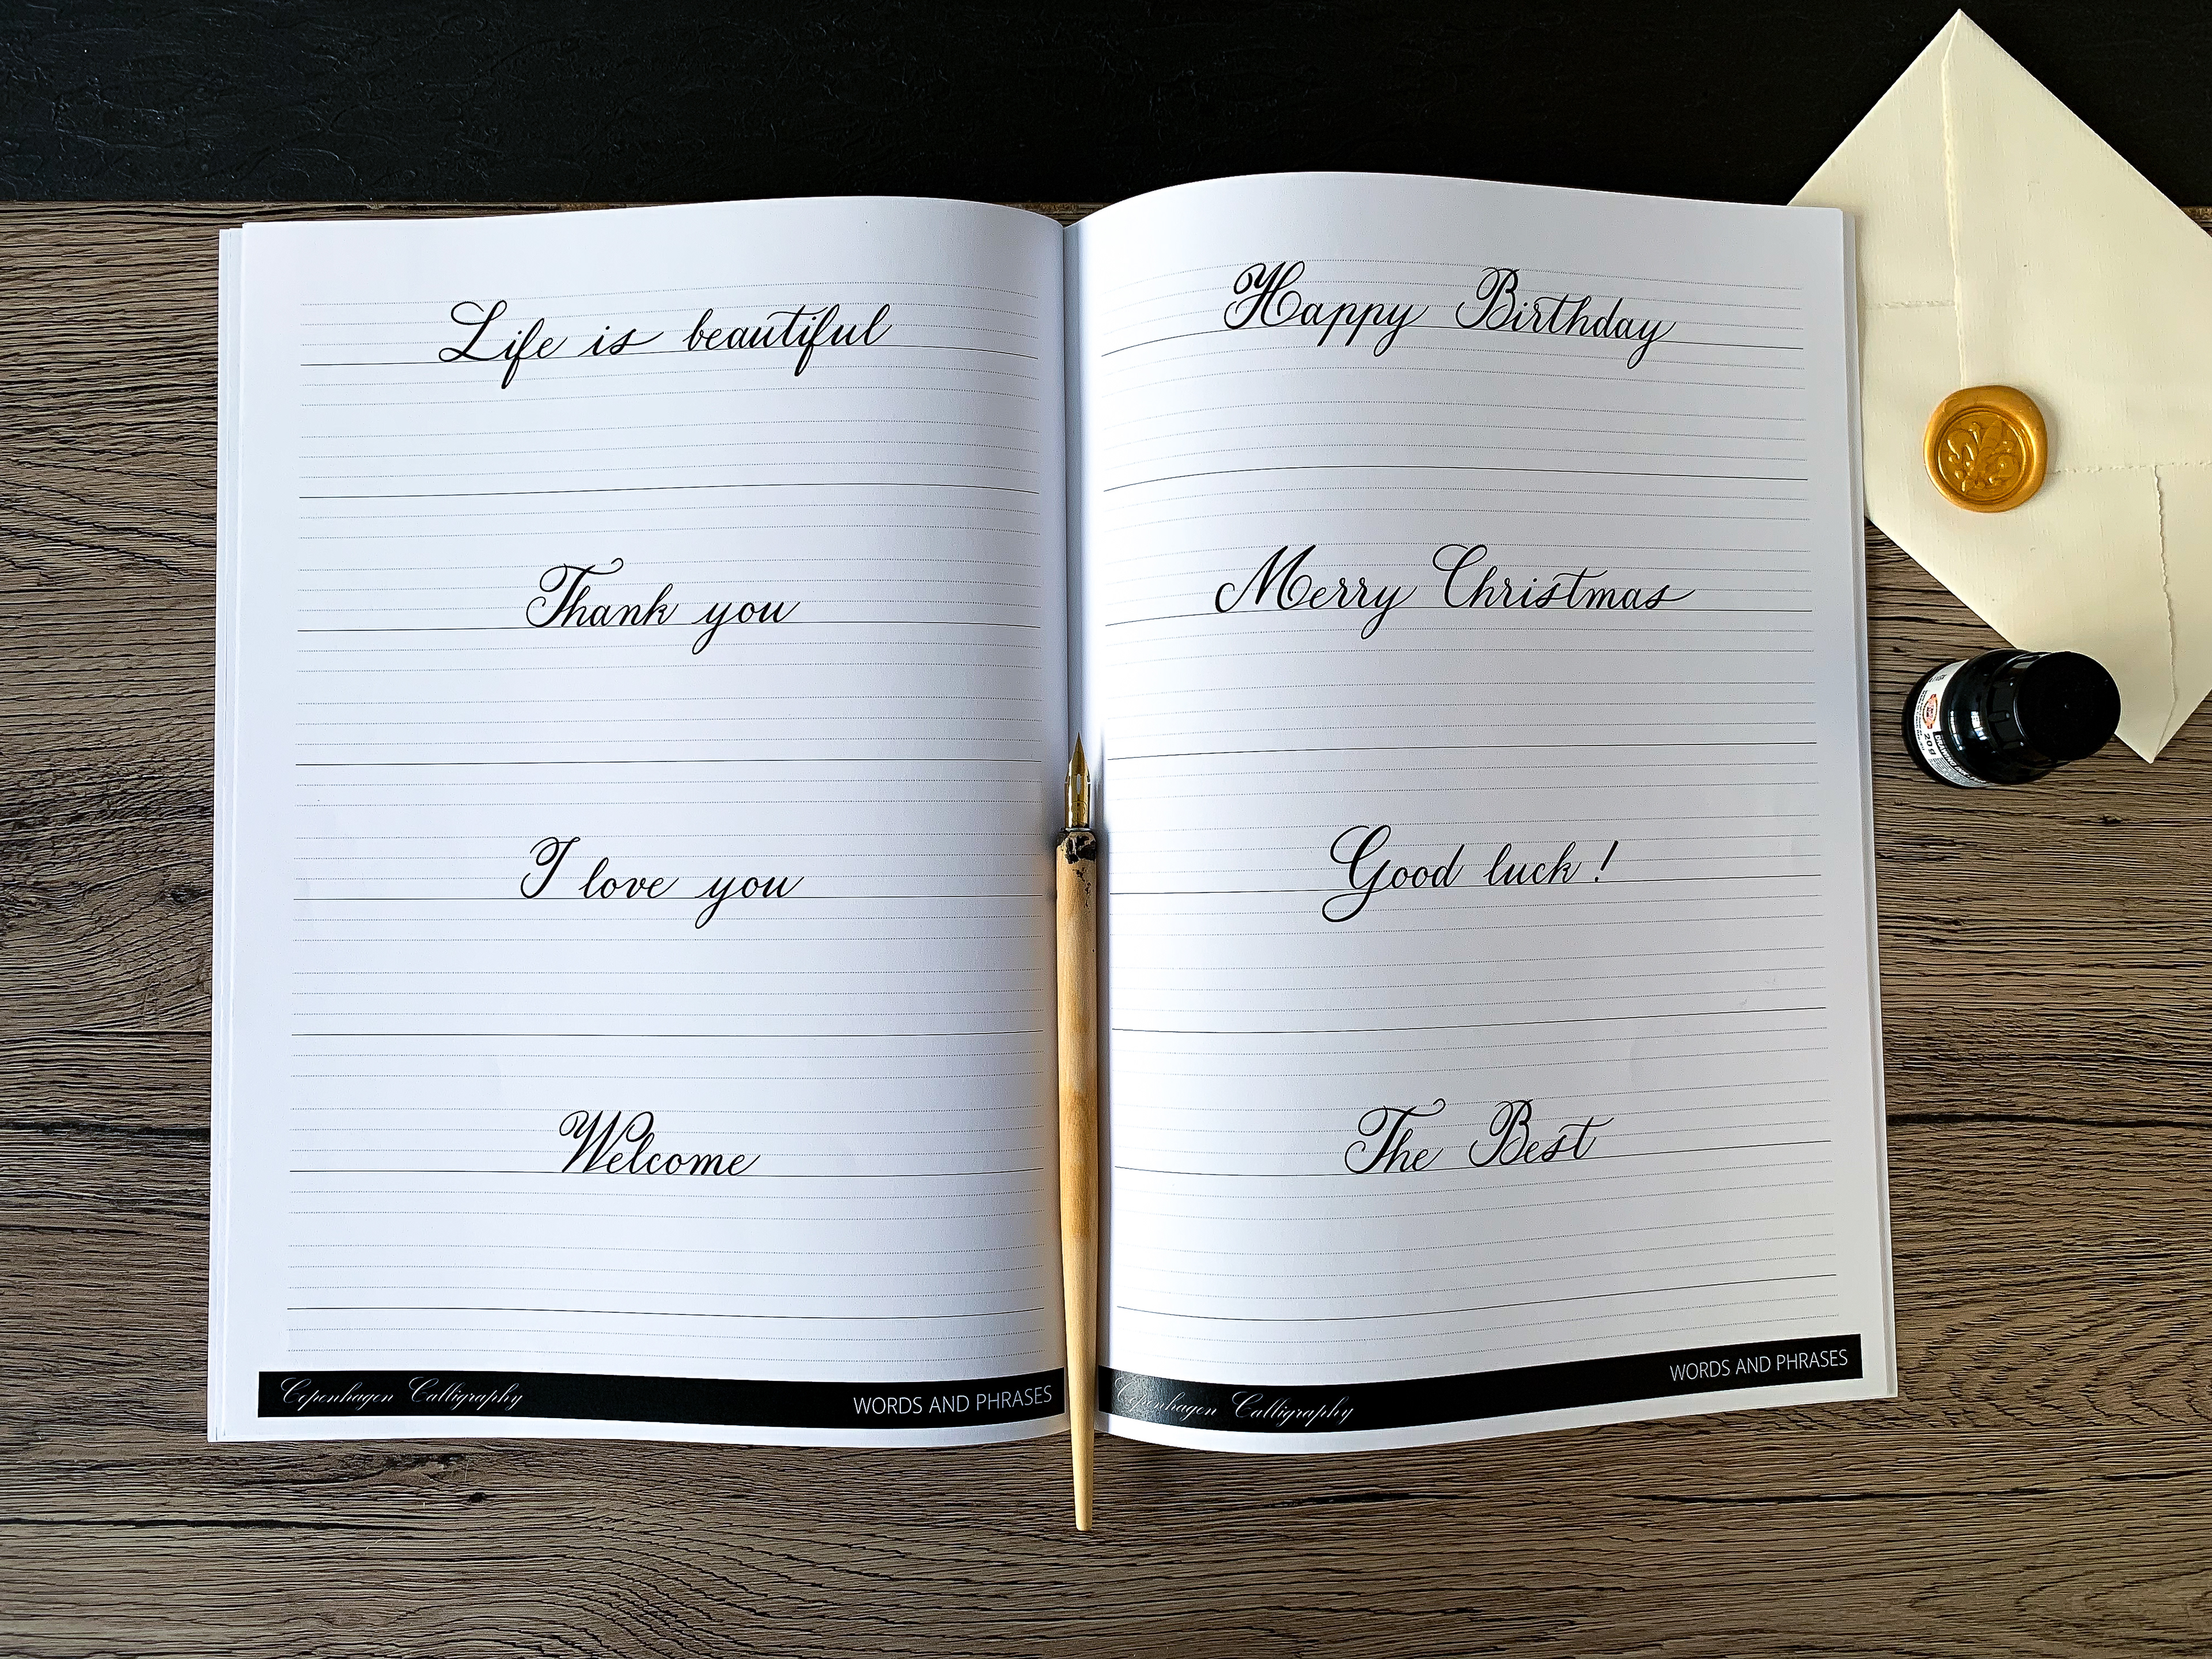 Life is beautiful
Thank you
I love you
Welcome
Copenhagen Calligraphy WORDS AND PHRASES
Happy Birthday
Merry Christmas
Good luck!
The Best
Copenhagen Calligraphy WORDS AND PHRASES
20g
DRAWING